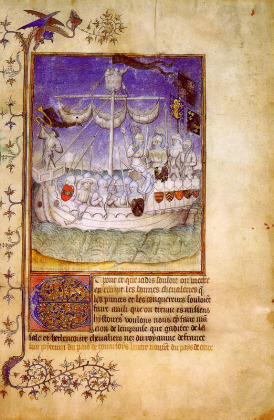 our ce que iadis souloit on mectre
en escript les bonnes cheualeries q
les princes et les conquereurs souloient
faire ainsi que on treuue es anciens
hystoires voulons nous cy faire men
cion de lemprinse que gadifer de la
sale et bethencourt cheualiers nez du royaume de france